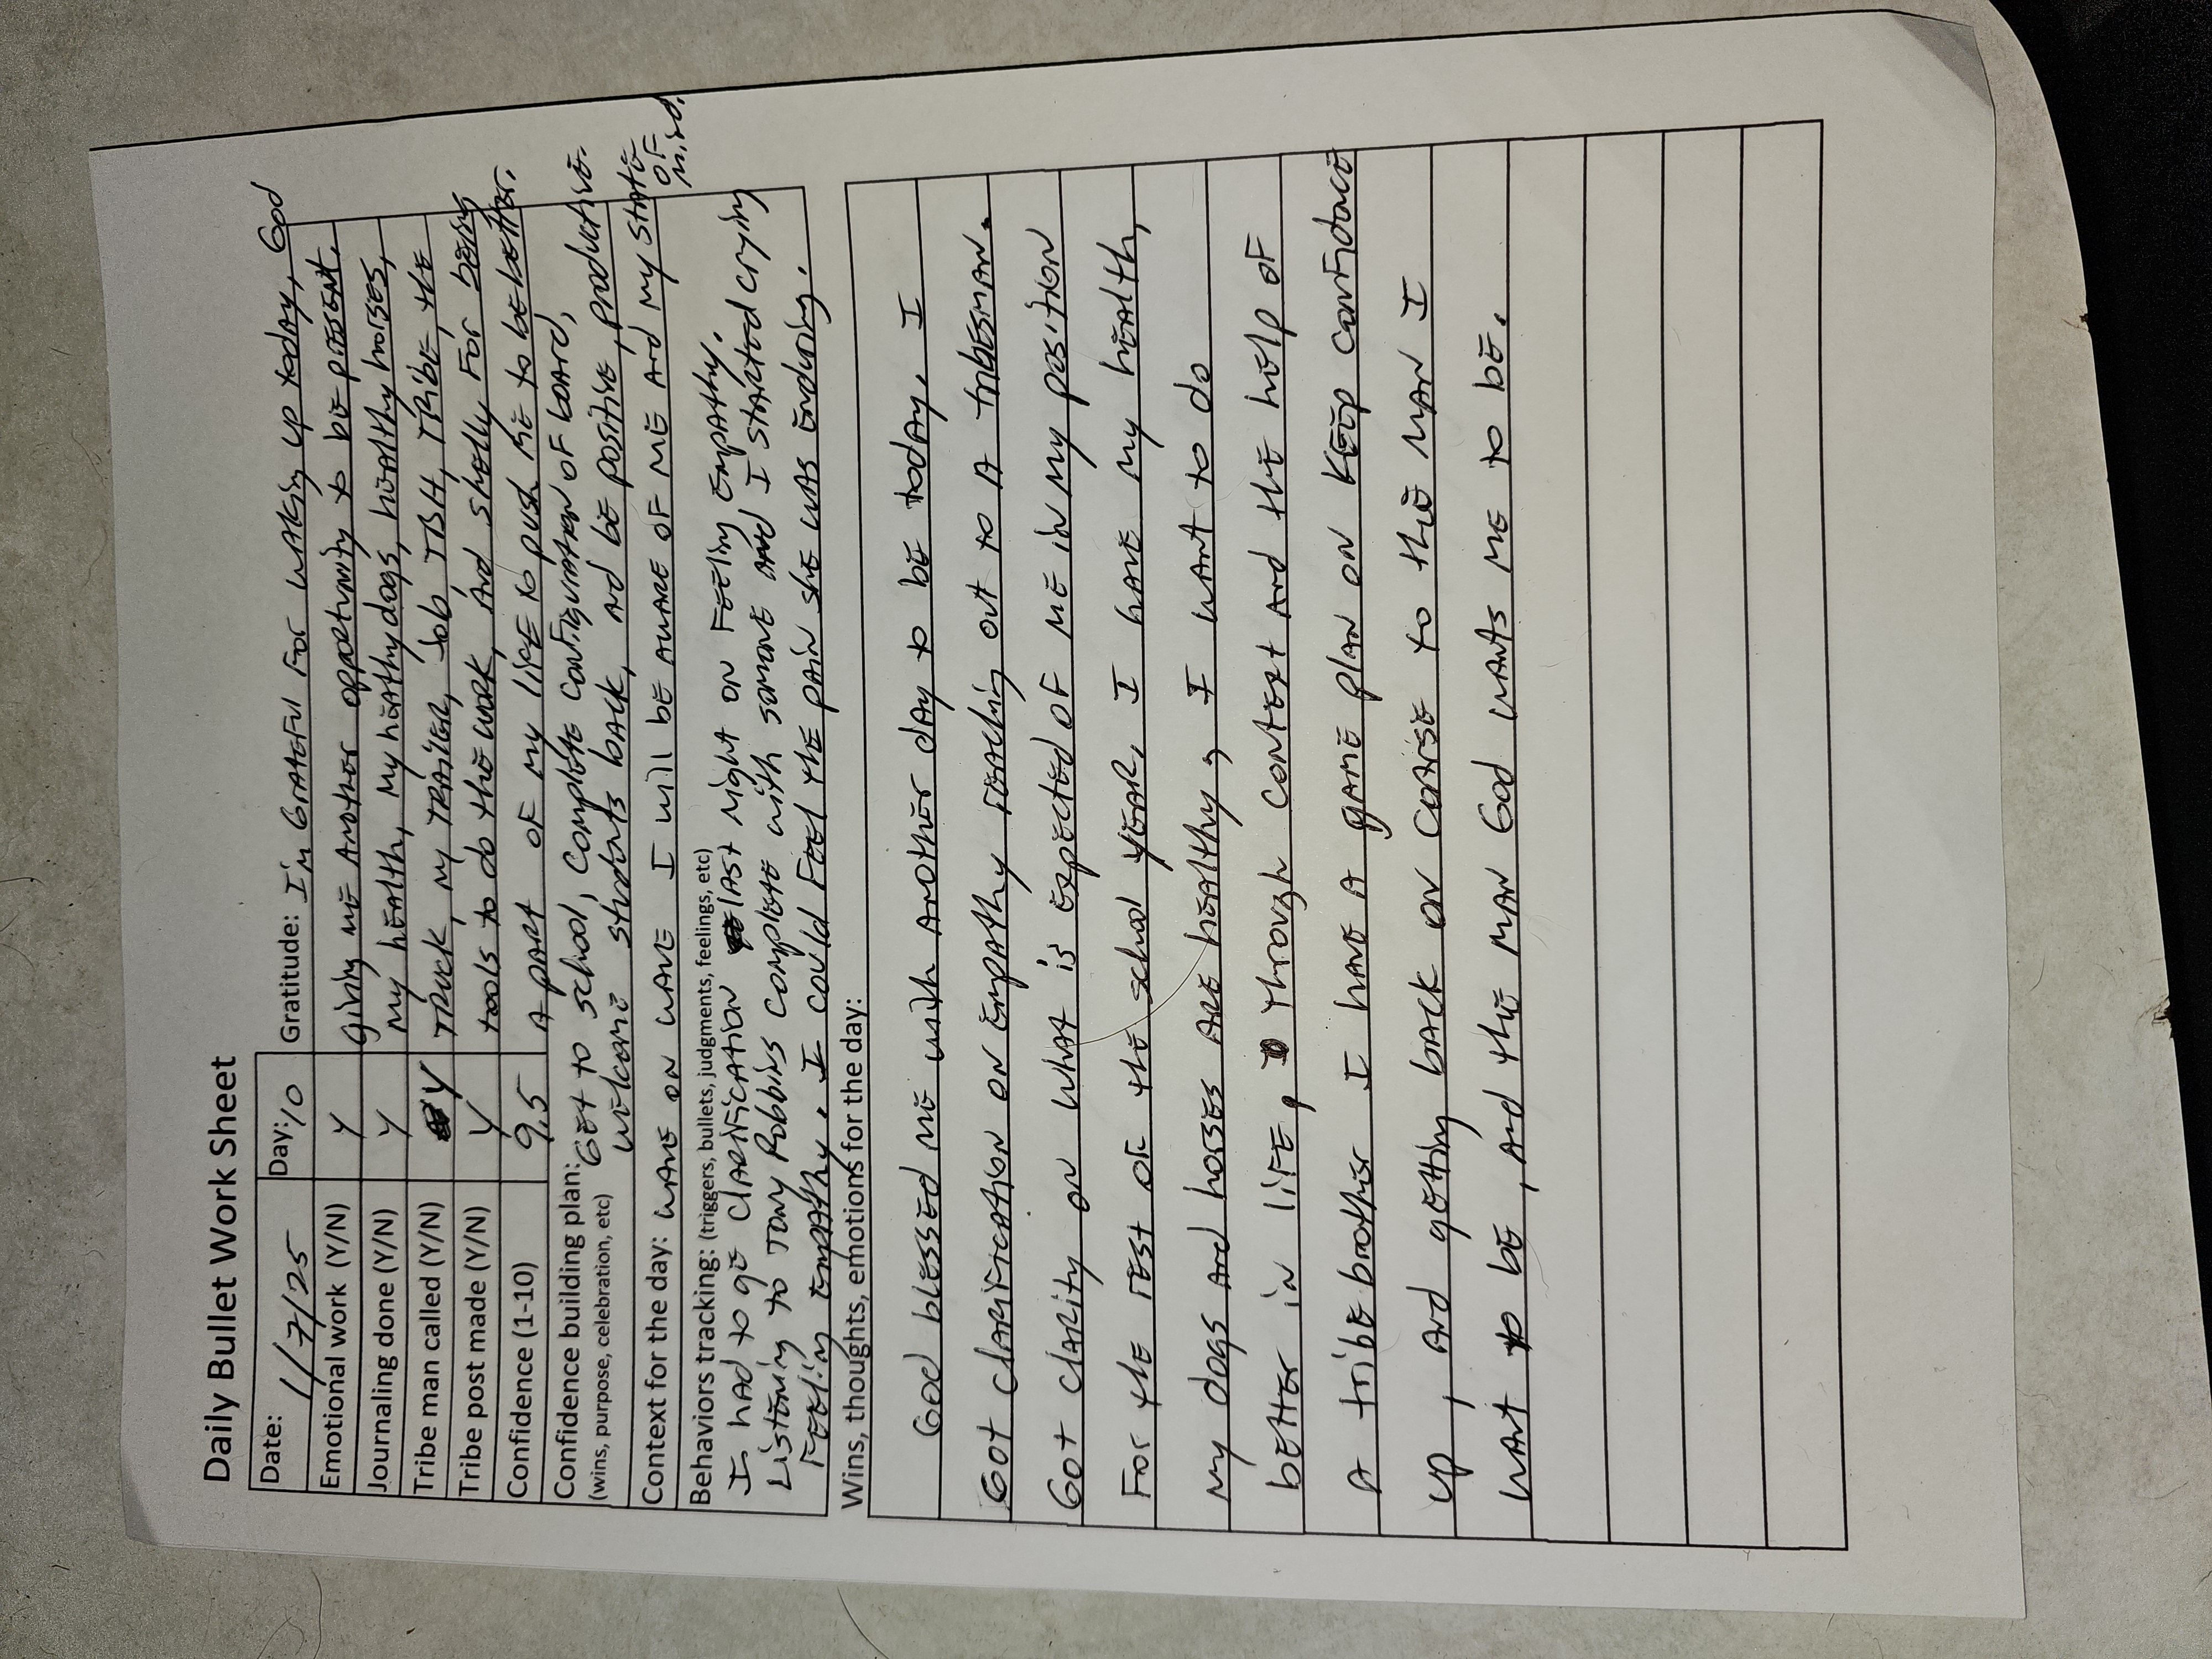 Daily Bullet Work Sheet
Date: 1/7/25 Day: 10 Gratitude: I'm Grateful For waking up today, God
Emotional work (Y/N) Y giving me Another opportunity to be present.
Journaling done (Y/N) Y My health, My healthy dogs, healthy horses,
Tribe man called (Y/N) Y Truck, my TRAILER, Job, TBH, Tribe, the
Tribe post made (Y/N) Y tools to do the work, And Shelly For being
Confidence (1-10) 9.5 A part of my life to push me to be better.
Confidence building plan: Get to school, Complete configuration of board,
(wins, purpose, celebration, etc) welcome students back, and be positive, productive.
Context for the day: wave on wave I will be aware of me And my state of mind.
Behaviors tracking: (triggers, bullets, judgments, feelings, etc)
I had to get clarification last night on Feeling Empathy.
Listening to Tony Robbins complete with somone and I started crying
Feeling Empathy. I could Feel the pain she was enduring.
Wins, thoughts, emotions for the day:
God blessed me with another day to be today. I
Got clarification on Empathy reaching out to a tribesman.
Got clarity on what is expected of me in my position
For the rest of the school year. I have my health,
My dogs and horses are healthy, I want to do
better in life, through context and the help of
a tribe brother I have a game plan on keep confidace
up, and getting back on coarse to the man I
want to be, and the man God wants me to be.